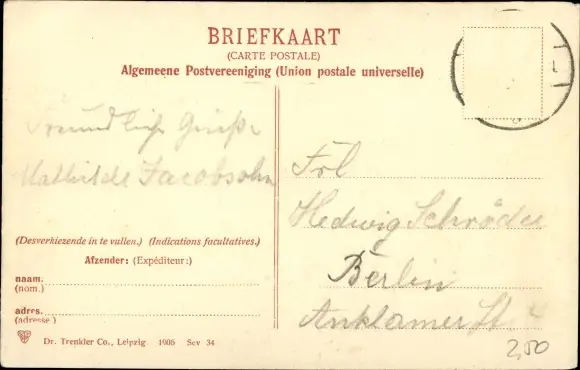 BRIEFKAART
(CARTE POSTALE)
Algemeene Postvereeniging (Union postale universelle)
Freundliche Grüße
Mathilde Jacobsohn
Frl
Hedwig Schröder
Berlin
Anklamer St. 4
(Desverkiezende in te vullen.) (Indications facultatives.)
Afzender: (Expéditeur:)
naam.
(nom.)
adres.
(adresse.)
Dr. Trenkler Co., Leipzig. 1906 Sev 34
2,50